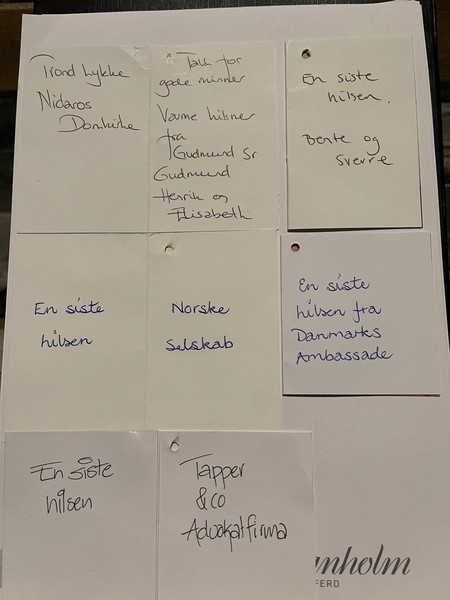 Trond Lykke
Nidaros
Domkirke
Takk for
gode minner
Varme hilsner
fra
Gudmund Sr
Gudmund
Henrik og
Elisabeth
En siste
hilsen.
Bente og
Sverre
En siste
hilsen
Norske
Selskab
En siste
hilsen fra
Danmarks
Ambassade
En siste
hilsen
Tapper
&co
Advokatfirma
nholm
FERD